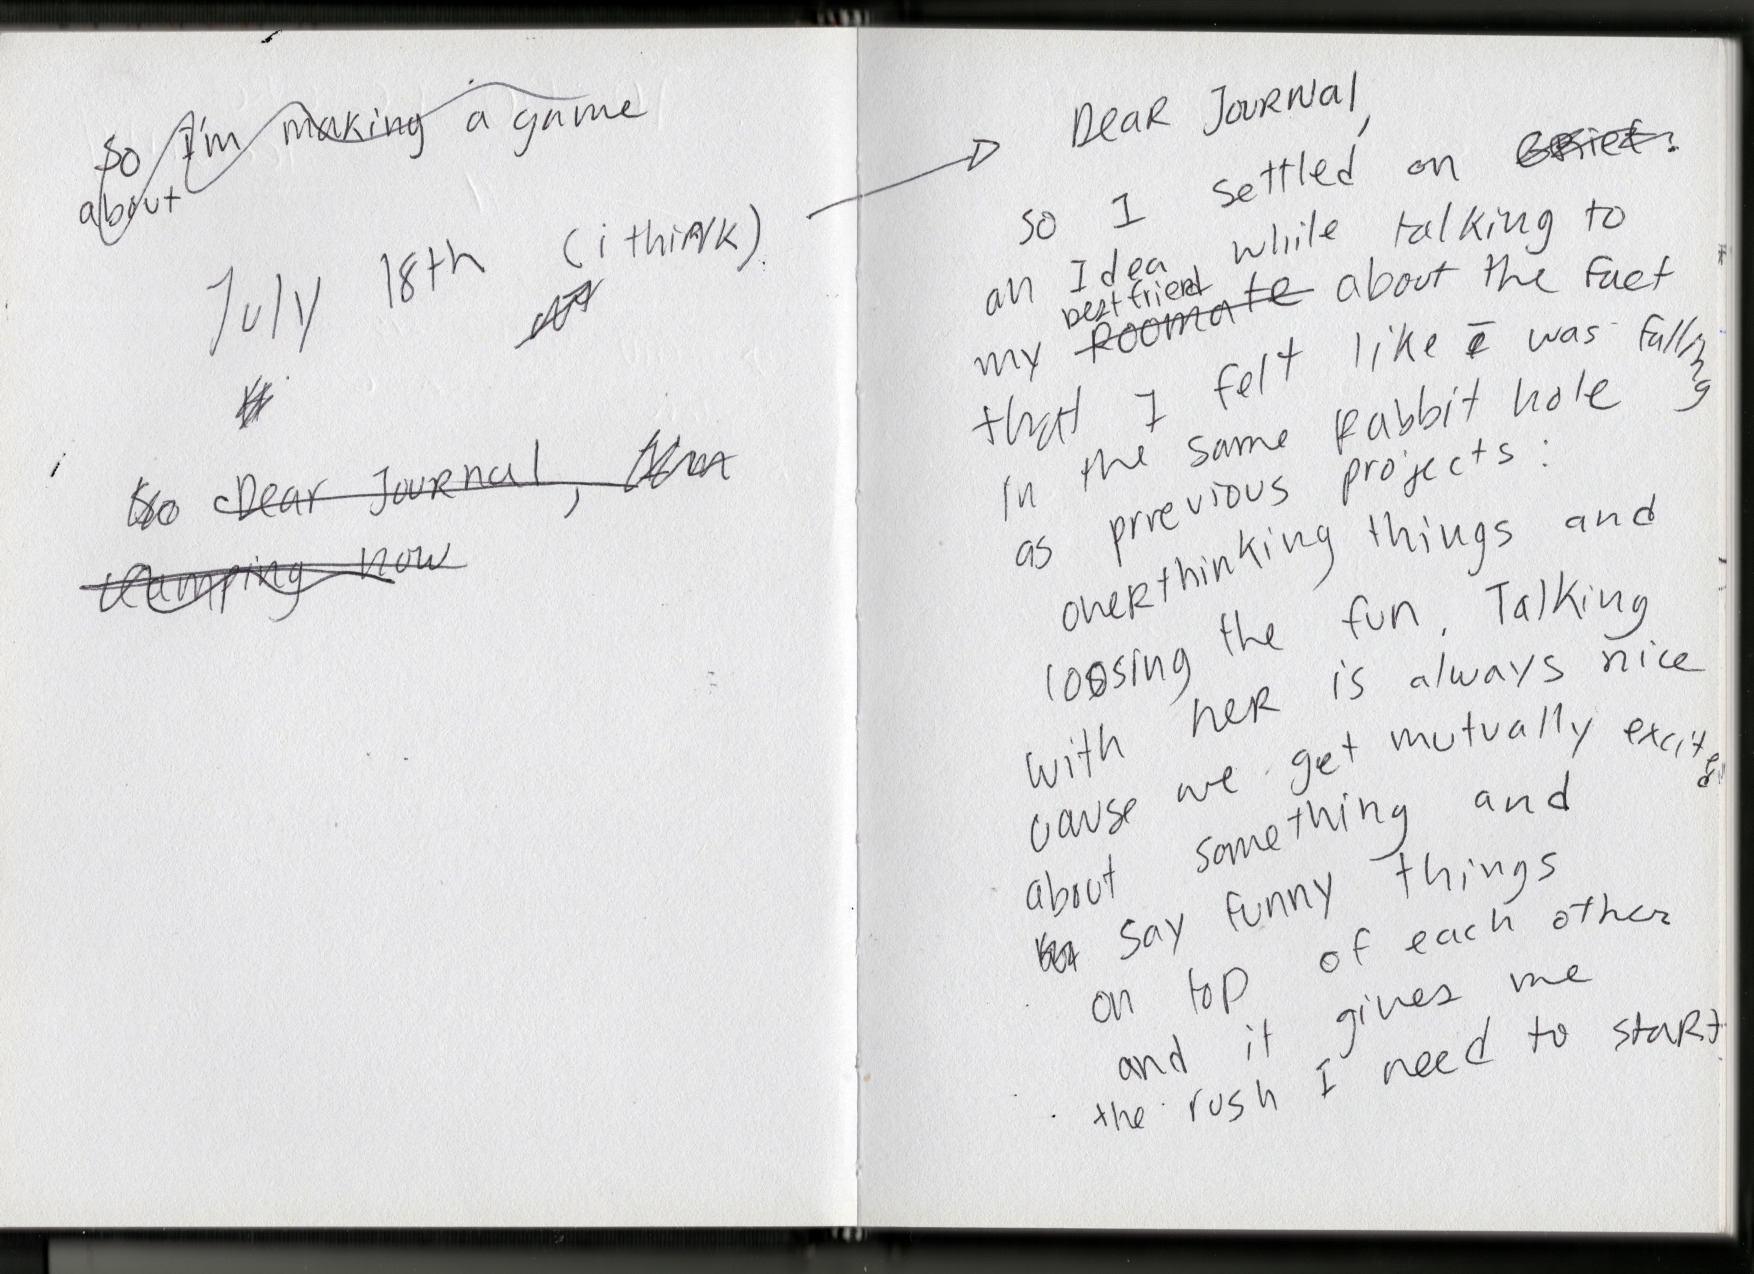 So I'm making a game
about
July 18th (i think)
so Dear Journal,
now
DEAR JOURNAL,
so I settled on
an Idea while talking to
best friend
my Roomate about the fact
that I felt like I was falling
in the same Rabbit hole
as prrevious projects:
overthinking things and
loosing the fun. Talking
with her is always nice
cause we get mutually excited
about something and
say funny things
on top of each other
and it gives me
the rush I need to start